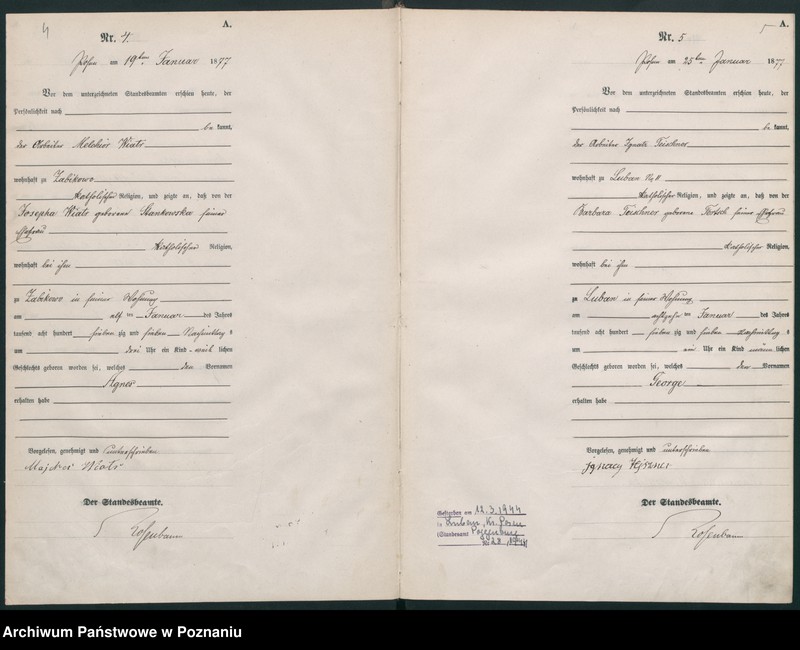 4
A.
Nr. 4.
Posen am 19ten Januar 1877
Vor dem unterzeichneten Standesbeamten erschien heute, der
Persönlichkeit nach
be kannt,
der Arbeiter Melchior Wiatr
wohnhaft zu Zabikowo
katholischer Religion, und zeigte an, daß von der
Josepha Wiatr geborene Stankowska seiner
Ehefrau
katholischer Religion,
wohnhaft bei ihm
zu Zabikowo in seiner Wohnung
am elf ten Januar des Jahres
tausend acht hundert sieben zig und sieben Nachmittag s
um drei Uhr ein Kind weib lichen
Geschlechts geboren worden sei, welches den Vornamen
Agnes
erhalten habe
Vorgelesen, genehmigt und unterschrieben
Wiatr
Der Standesbeamte.
Rosenbaum
5
A.
Nr. 5
Posen am 25ten Januar 1877
Vor dem unterzeichneten Standesbeamten erschien heute, der
Persönlichkeit nach
be kannt,
der Arbeiter Ignatz Teischner
wohnhaft zu Luban
katholischer Religion, und zeigte an, daß von der
Barbara Teischner geborene seiner Ehefrau
katholischer Religion,
wohnhaft bei ihm
zu Luban in seiner Wohnung
am achtzehn ten Januar des Jahres
tausend acht hundert sieben zig und sieben Nachmittag s
um ein Uhr ein Kind männ lichen
Geschlechts geboren worden sei, welches den Vornamen
George
erhalten habe
Vorgelesen, genehmigt und unterschrieben
Ignacy
Der Standesbeamte.
Rosenbaum
Gestorben am 12.3.1944
in Luban, Kr. Posen
(Standesamt
Nr. 28/1944)
Archiwum Państwowe w Poznaniu